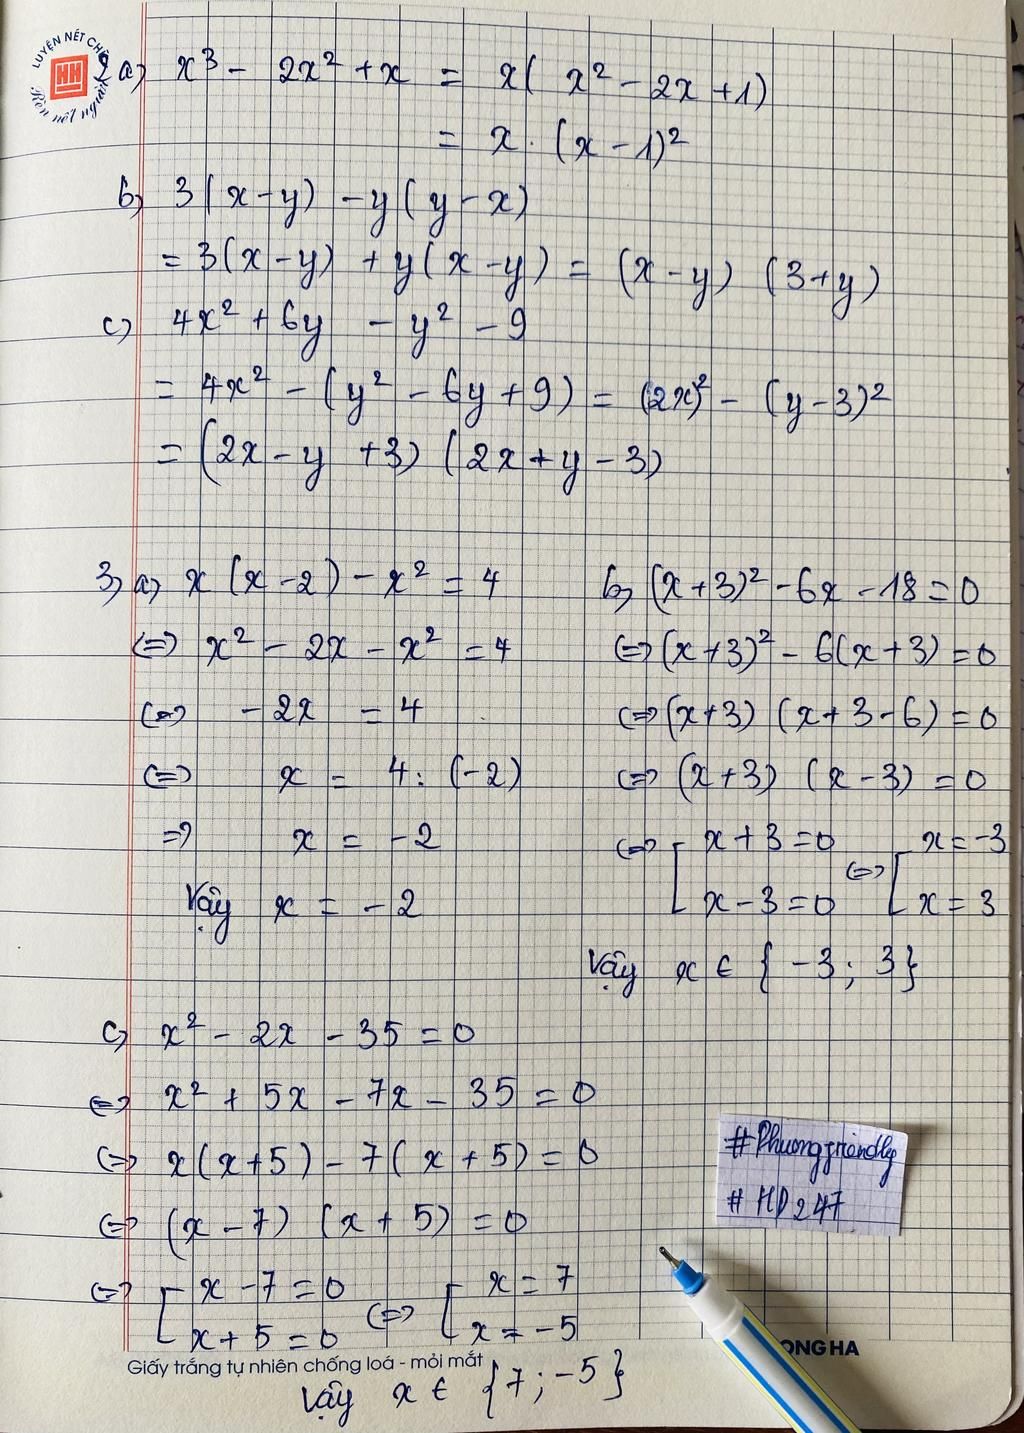 LUYỆN NẾT CHỮ
HH
Rèn nết người
2a) x³ - 2x² + x = x( x² - 2x + 1)
= x . (x - 1)²
b) 3(x - y) - y(y - x)
= 3(x - y) + y(x - y) = (x - y) (3 + y)
c) 4x² + 6y - y² - 9
= 4x² - (y² - 6y + 9) = (2x)² - (y - 3)²
= (2x - y + 3) (2x + y - 3)
3) a) x (x - 2) - x² = 4
(=) x² - 2x - x² = 4
(=) - 2x = 4
(=) x = 4 : (-2)
=) x = - 2
Vậy x = - 2
b) (x + 3)² - 6x - 18 = 0
(=) (x + 3)² - 6(x + 3) = 0
(=) (x + 3) (x + 3 - 6) = 0
(=) (x + 3) (x - 3) = 0
(=) [ x + 3 = 0 (=) [ x = -3
x - 3 = 0 x = 3
Vậy x ∈ { -3 ; 3}
c) x² - 2x - 35 = 0
(=) x² + 5x - 7x - 35 = 0
(=) x(x + 5) - 7( x + 5) = 0
(=) (x - 7) (x + 5) = 0
(=) [ x - 7 = 0 (=) [ x = 7
x + 5 = 0 x = -5
Vậy x ∈ {7 ; -5}
#Phuongfriendly
# HD 247
Giấy trắng tự nhiên chống loá - mỏi mắt
ONG HA